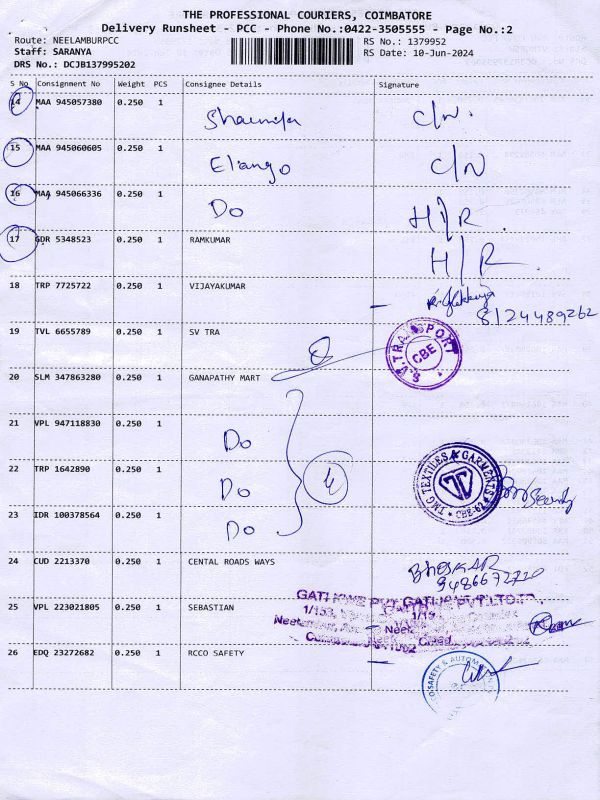 THE PROFESSIONAL COURIERS, COIMBATORE
Delivery Runsheet - PCC - Phone No.:0422-3505555 - Page No.:2
Route: NEELAMBURPCC RS No.: 1379952
Staff: SARANYA RS Date: 10-Jun-2024
DRS No.: DCJB137995202
S No Consignment No Weight PCS Consignee Details Signature
14 MAA 945057380 0.250 1 C/N.
15 MAA 945060605 0.250 1 Elango C/N
16 MAA 945066336 0.250 1 Do H/R
17 GDR 5348523 0.250 1 RAMKUMAR H/R
18 TRP 7725722 0.250 1 VIJAYAKUMAR 8124489262
19 TVL 6655789 0.250 1 SV TRA S.V.TRANSPORT CBE
20 SLM 347863280 0.250 1 GANAPATHY MART
21 VPL 947118830 0.250 1 Do
22 TRP 1642890 0.250 1 Do TMG TEXTILES & GARMENTS CBE-62
23 IDR 100378564 0.250 1 Do
24 CUD 2213370 0.250 1 CENTAL ROADS WAYS BHASKAR
9486672720
25 VPL 223021805 0.250 1 SEBASTIAN
26 EDQ 23272682 0.250 1 RCCO SAFETY